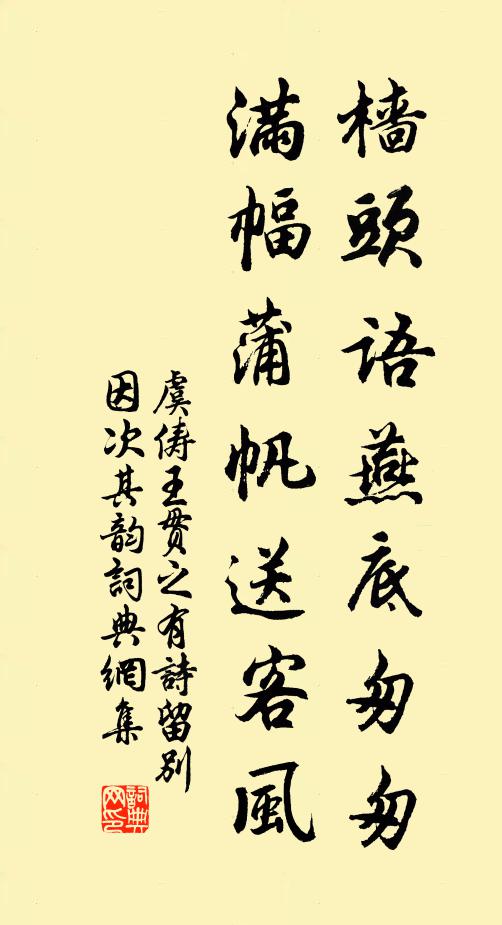 檣頭語燕底匆匆
滿幅蒲帆送客風
虞儔王貫之有詩留別
因次其韵詞典網集
詞典网印